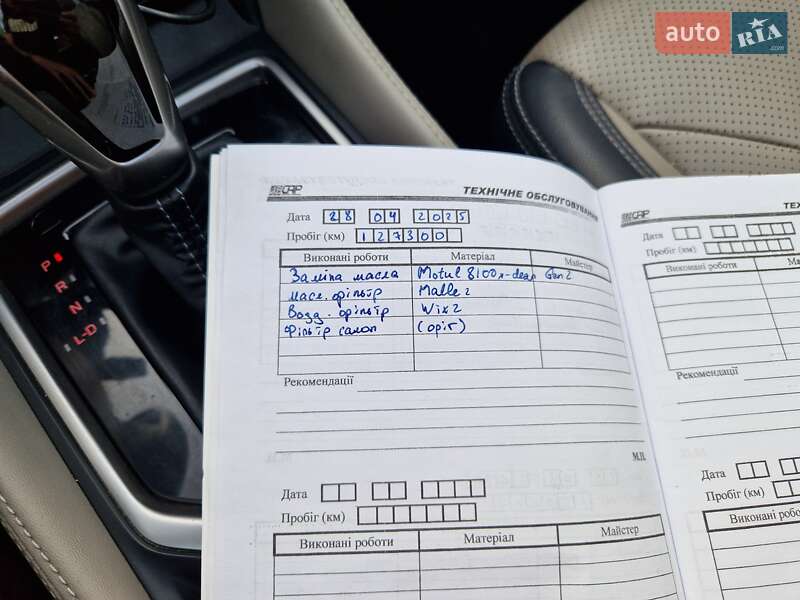 auto RIA .com
ТЕХНІЧНЕ ОБСЛУГОВУВАННЯ
Дата 28 04 2025
Пробіг (км) 127300
Виконані роботи Матеріал Майстер
Заміна масла Motul 8100 x-clean Gen2
масл. фільтр Malle 2
Возд. фільтр Wix 2
Фільтр салон (оріг)
Рекомендації
М.П.
Дата
Пробіг (км)
Виконані роботи Матеріал Майстер
ТЕ
Дата
Пробіг (км)
Виконані роботи Мат
Рекомендації
Дата
Пробіг (км)
Виконані роботи
P
R
N
L-D